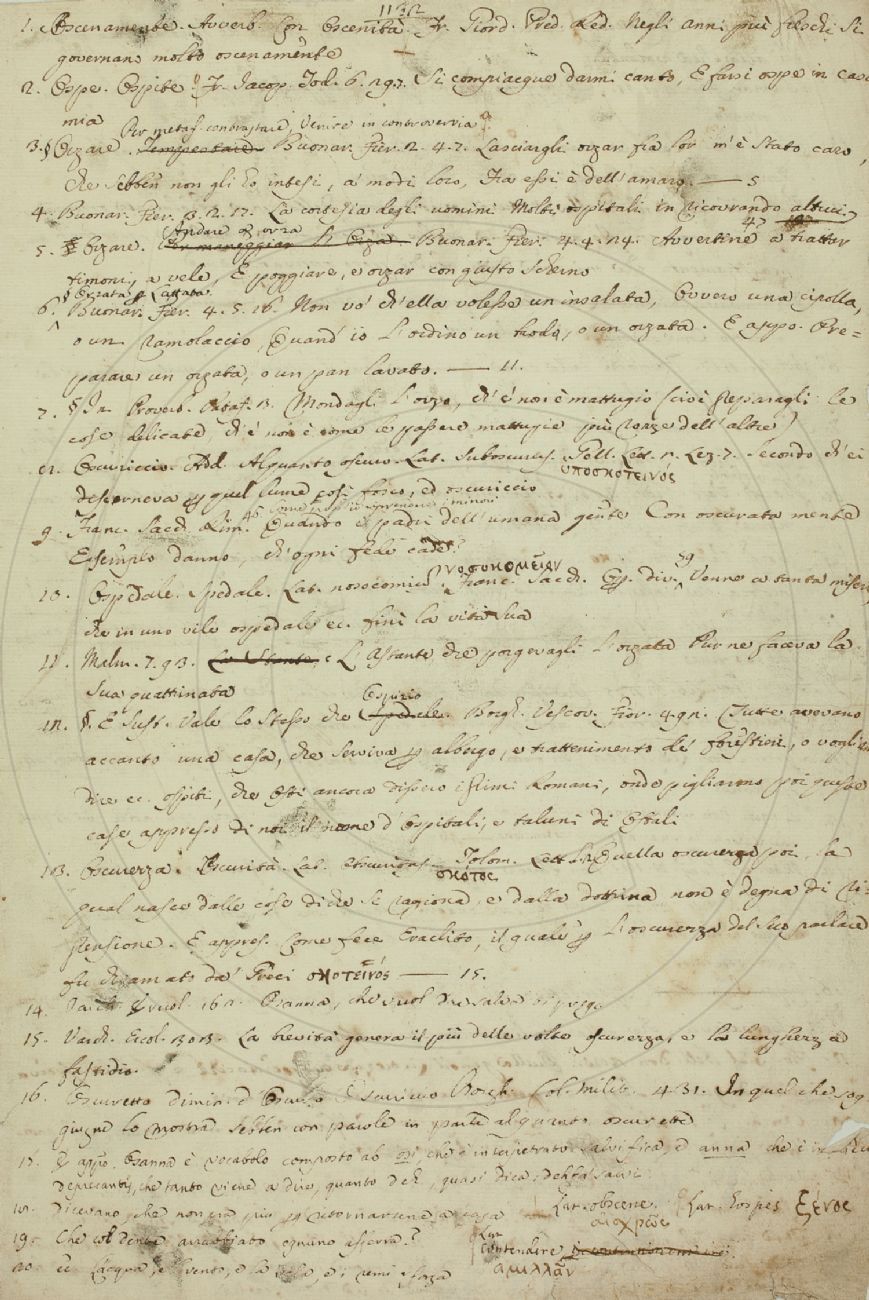 1132
1. Oscenamente. Avverb. Con Oscenità. Fr. Giord. Pred. Red. Negli anni più freschi si
governano molto oscenamente
2. Ospe. Ospite. Fr. Jacop. Tod. 6. 29. 7. Si compiacque darmi canto, E farsi ospe in casa
mia
Per metaf. contrastare, Venire in controversia
3. § Orzare. Tempestare. Buonar. Fier. 2. 4. 7. Lasciargli orzar fra lor m'è stato caro,
che sebben non gli ho intesi, a' modi loro, Fra essi è dell'amaro. — 5
4. Buonar. Fier. 3. 2. 17. La cortesia degli uomini Molto ospitali in ricovrando altrui
Andare a orza
5. § Orzare. Buonar. Fier. 4. 4. 24. Avvertire a trattar
timoni, a vele, E poggiare, e orzar con giusto scherno
§ Orzata Lattata
6. Buonar. Fier. 4. 5. 16. Non vo' ch'ella volesse un insalata, Ovvero una cipolla,
o un ramolaccio, Quand'io l'ordino un brodo, o un orzata. E appo. Pre=
parare un orzata, o un pan lavato. — 11.
7. § In Proverb. Pataf. 3. Mondagli l'orzo, ch'e' non è mattugio (cioè preparagli le
cose delicate, ch'e' non è come le passere mattugie più del'altre)
Oscuriccio. Add. Alquanto oscuro. Lat. Subobscurus. Gell. Lett. 2. Lez. 7. Secondo ch'ei
ὑποσκοτεινός
discerneva per quel lume così fosco, ed oscuriccio
9. Franc. Sacch. Rim. 46. Quando e' padri dell'umana gente Con oscurata mente
Esemplo danno, ch'ogni fede cade
νοσοκομεῖον
10. Ospedale. Spedale. Lat. nosocomium. Franc. Sacch. Op. div. 59 Venne a tanta miseria
che in uno vile ospedale ec. finì la vita sua
11. Malm. 7. 93. L'Astante che porgevagli l'orzata Pur ne faceva la
sua quattinata
Ospizio
12. §. E Sust. Vale lo stesso che Spedale. Borgh. Vescov. Fior. 492. Tutte avevano
accanto una casa, che serviva per albergo, e trattenimento de' forestieri, o vogliam
dire ec. ospiti, che così ancora dissero i primi Romani, onde pigliarono poi queste
case appresso di noi il nome d'Ospitali, e taluni di Ostili
13. Oscurezza. Oscurità. Lat. obscuritas. Tolom. Lett. Quella oscurezza poi, la
σκότος
qual nasce dalle cose di che si ragiona, e dalla dottrina non è degna di ri=
prensione. E appres. Come fece Eraclito, il quale per l'oscurezza del suo parlare
fu chiamato da' Greci σκοτεινός — 15.
14. Osanna, che vuol dire salva
15. Varch. Ercol. 303. La brevità genera il più delle volte oscurezza, e la lunghezza
fastidio.
16. Oscuretto dimin. d'Oscuro Borgh. Col. Milit. 431. In quel che sog
giugne lo mostra sebben con parole in parte alquanto oscurette
E appo. Osanna è vocabolo composto ab osi, che è interpretato salvifica, e anna che è in
deprecantis, che tanto viene a dire, quanto
Dicevano, che non era più per ritornarsene a casa
Lat. obscene. Lat. hospes ξένος
αἰσχρῶς
19. Che col dente arrabbiato ognuno afferra?
Lat. contendere
ἁμιλλᾶν
20. l'acqua, e'l vento, e la vela, e i remi sforza